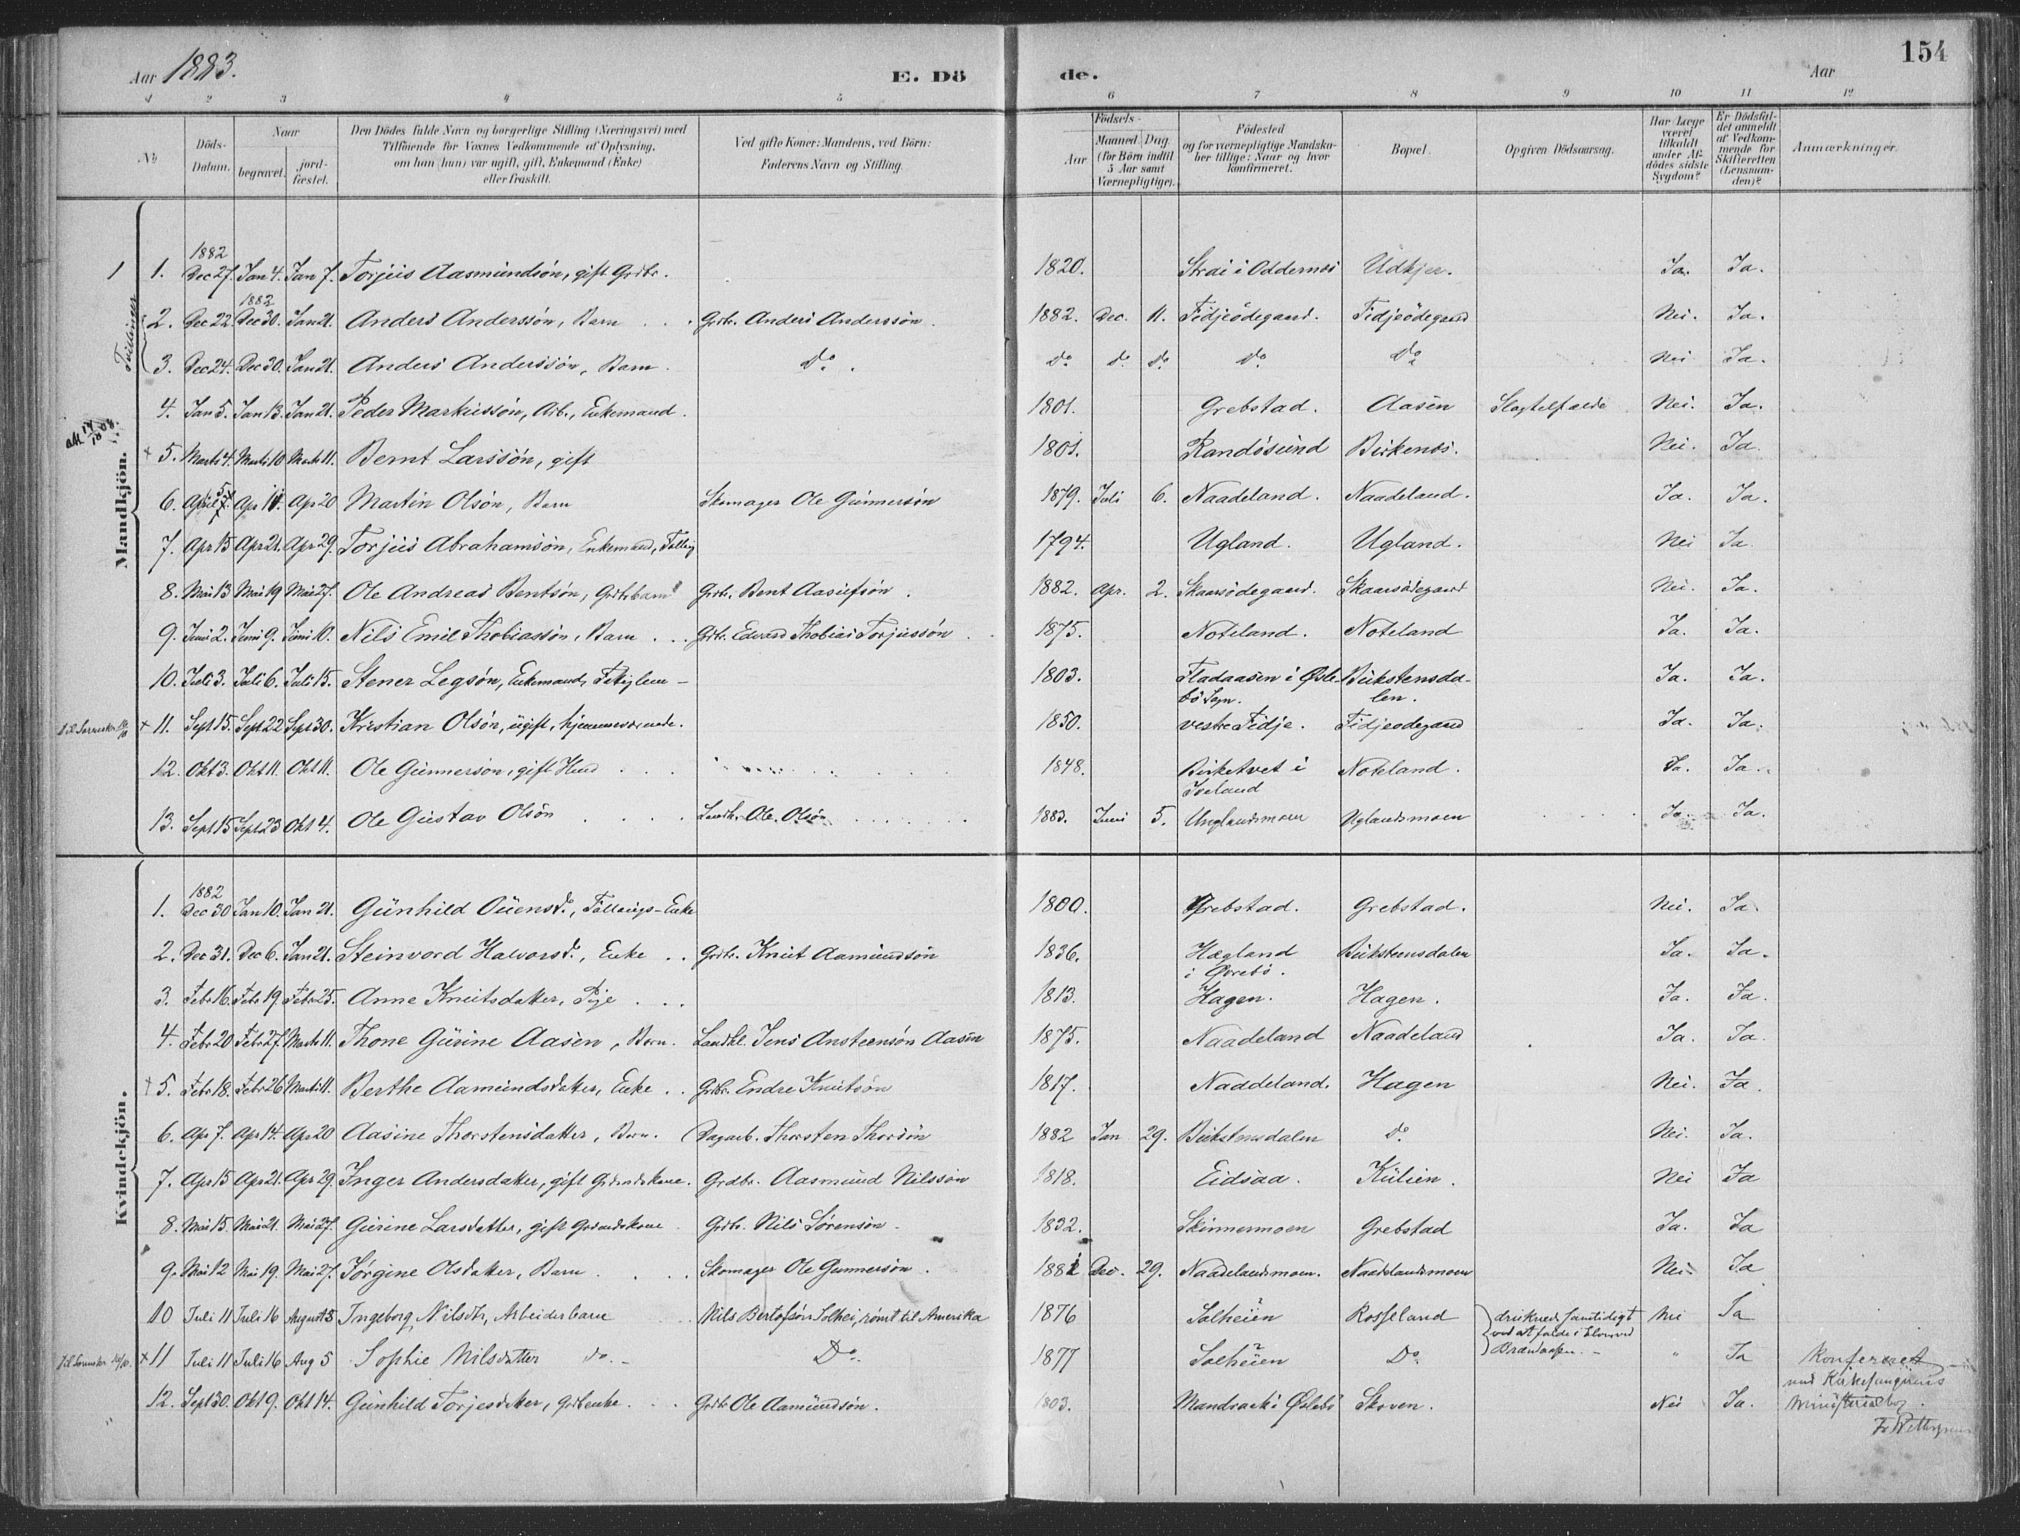 Aar 1883. E. Dö de. Aar 154
1 2 3 4 5 6 7 8 9 10 11 12
No Döds-Datum. Naar begravet. jord-fæstet. Den Dödes fulde Navn og borgerlige Stilling (Næringsvei) med Tilföiende for Voxnes Vedkommende af Oplysning, om han (hun) var ugift, gift, Enkemand (Enke) eller fraskilt. Ved gifte Koner: Mandens, ved Börn: Faderens Navn og Stilling. Födsels- Aar Maaned Dag (for Börn indtil 5 Aar samt Værnepligtige). Födested og for værnepligtige Mandskaber tillige: Naar og hvor konfirmeret. Bopæl. Opgiven Dödsaarsag. Har Læge været tilkaldt under Afdödes sidste Sygdom? Er Dödsfaldet anmeldt af Vedkommende for Skifteretten (Lensmanden)? Anmærkninger.
Mandkjön.
1 1. 1882 Dec 27. Jan 4. Jan 7. Torjuis Aasmundsön, gift Grdbr. 1820. Strai i Oddernes Udkjer. Ja. Ja.
Tvillinger
2. Dec 22. 1882 Dec 30. Jan 21. Anders Anderssön, Barn Grdb. Anders Anderssön. 1882. Dec. 11. Fidjeödegaard. Fidjeödegaard Nei. Ja.
3. Dec 24. Dec 30. Jan 21. Anders Anderssön, Barn. Do. Do. do. do. do. Do Nei Ja.
4. Jan 5. Jan 13. Jan 21. Peder Markussön, Arb., Enkemand. 1801. Grebstad. Aasen Slagtilfælde Nei. Ja.
+ 5. Marts 4. Marts 10 Marts 11. Bernt Larssön, gift 1801. Randösund Birkenes. Nei. Ja.
6. April 7. Apr 11. Apr 20 Martin Olsön, Barn Skomager Ole Gunnersön 1879. Juli 6. Naadeland. Naadeland. Ja. Ja.
7. Apr 15 Apr 21. Apr 29. Torjuis Abrahamsön, Enkemand, 1794. Ugland. Ugland. Nei Ja.
8. Mai 13 Mai 19 Mai 27. Ole Andreas Bentsön, Grdbbarn Grdb. Bent Aasulfsön. 1882. Apr. 2. Skaarsödegaard. Skaarsödegaard Nei. Ja.
9. Juni 2. Juni 9. Juni 10. Nils Emil Thobiassön, Barn Grdb. Edvard Thobias Torjussön 1875. Noteland. Noteland Ja. Ja.
10. Juli 3. Juli 6. Juli 15. Stener Legsön, Enkemand, Fattiglem 1803. Fladaasen i Øslebö Sogn. Birkstensdalen. Ja. Ja.
+ 11. Sept 15. Sept 22 Sept 30. Kristian Olsön, ugift, hjemmeværende. 1850. vestre Fidje. Fidjeodegaard Ja. Ja.
12. Okt 3. Okt 11. Okt 11. Ole Gunnersön, gift Husm 1848. Birketvet i Iveland Noteland. Ja. Ja.
13. Sept 15 Sept 23 Okt 4. Ole Gustav Olsön Landh. Ole Olsön 1883. Juni 5. Unglandsmoen Uglandsmoen Ja. Ja.
Kvindekjön.
1. 1882 Dec 30 Jan 10. Jan 21. Gunhild Ouensd., Föllougs-Enke 1800. Grebstad. Grebstad. Nei. Ja.
2. Dec 31. Dec 6. Jan 21. Steinvord Halvorsd., Enke Grdbr. Knut Aamundsön 1836. Hægland i Øvrebö. Birkstensdalen Ja. Ja.
3. Febr 16. Febr 19. Febr 25. Anne Knutsdatter, Pige 1813. Hagen. Hagen. Ja. Ja.
4. Febr 20 Febr 27. Marts 11. Thone Gurine Aasen, Barn. Landhl. Jens Ansteensön Aasen 1875. Naadeland Naadeland Ja. Ja.
+ 5. Febr 18. Febr 26 Marts 11. Berthe Aamundsdatter, Enke Grdbr. Endre Knutsön 1817. Naadeland. Hagen Nei. Ja.
6. Apr 7. Apr 14. Apr 20 Aasine Thorstensdatter, Barn. Dagarb. Thorsten Thorsön 1882 Jan 29. Birkstensdalen do. Nei. Ja.
7. Apr 15 Apr 21. Apr 29. Inger Andersdatter, gift Grdmdskone. Grdbr. Aasmund Nilssön 1818. Eidsaa. Kulien. Nei Ja
8. Mai 15. Mai 21. Mai 27. Gurine Larsdatter, gift Grdmdskone Grdbr. Nils Sörensön. 1832. Skinnermoen Grebstad Ja. Ja
9. Mai 12 Mai 19. Mai 27. Jörgine Olsdatter, Barn Skomager Ole Gunnersön. 1881 Dec. 29. Naadelandsmoen. Naadelandsmoen Nei Ja
10 Juli 11 Juli 16 August 5 Ingeborg Nilsdtr, Arbeiderbarn Nils Bertofsön Solhei, römt til Amerika 1876 Solheien Rosseland druknede samtidigt ved at falde i Nei Ja
+ 11 Juli 11 Juli 16 Aug 5 Sophie Nilsdatter do. Do. 1877 Solheien Do. " Ja
12. Sept 30. Okt 9. Okt 14. Gunhild Torjesdatter, Grdbenke. Grdb Ole Aamundsön. 1803. Mandvaak i Øslebö Skoven. Nei Ja.
Konfereret
med Kirkesangerens
Ministerialbog.